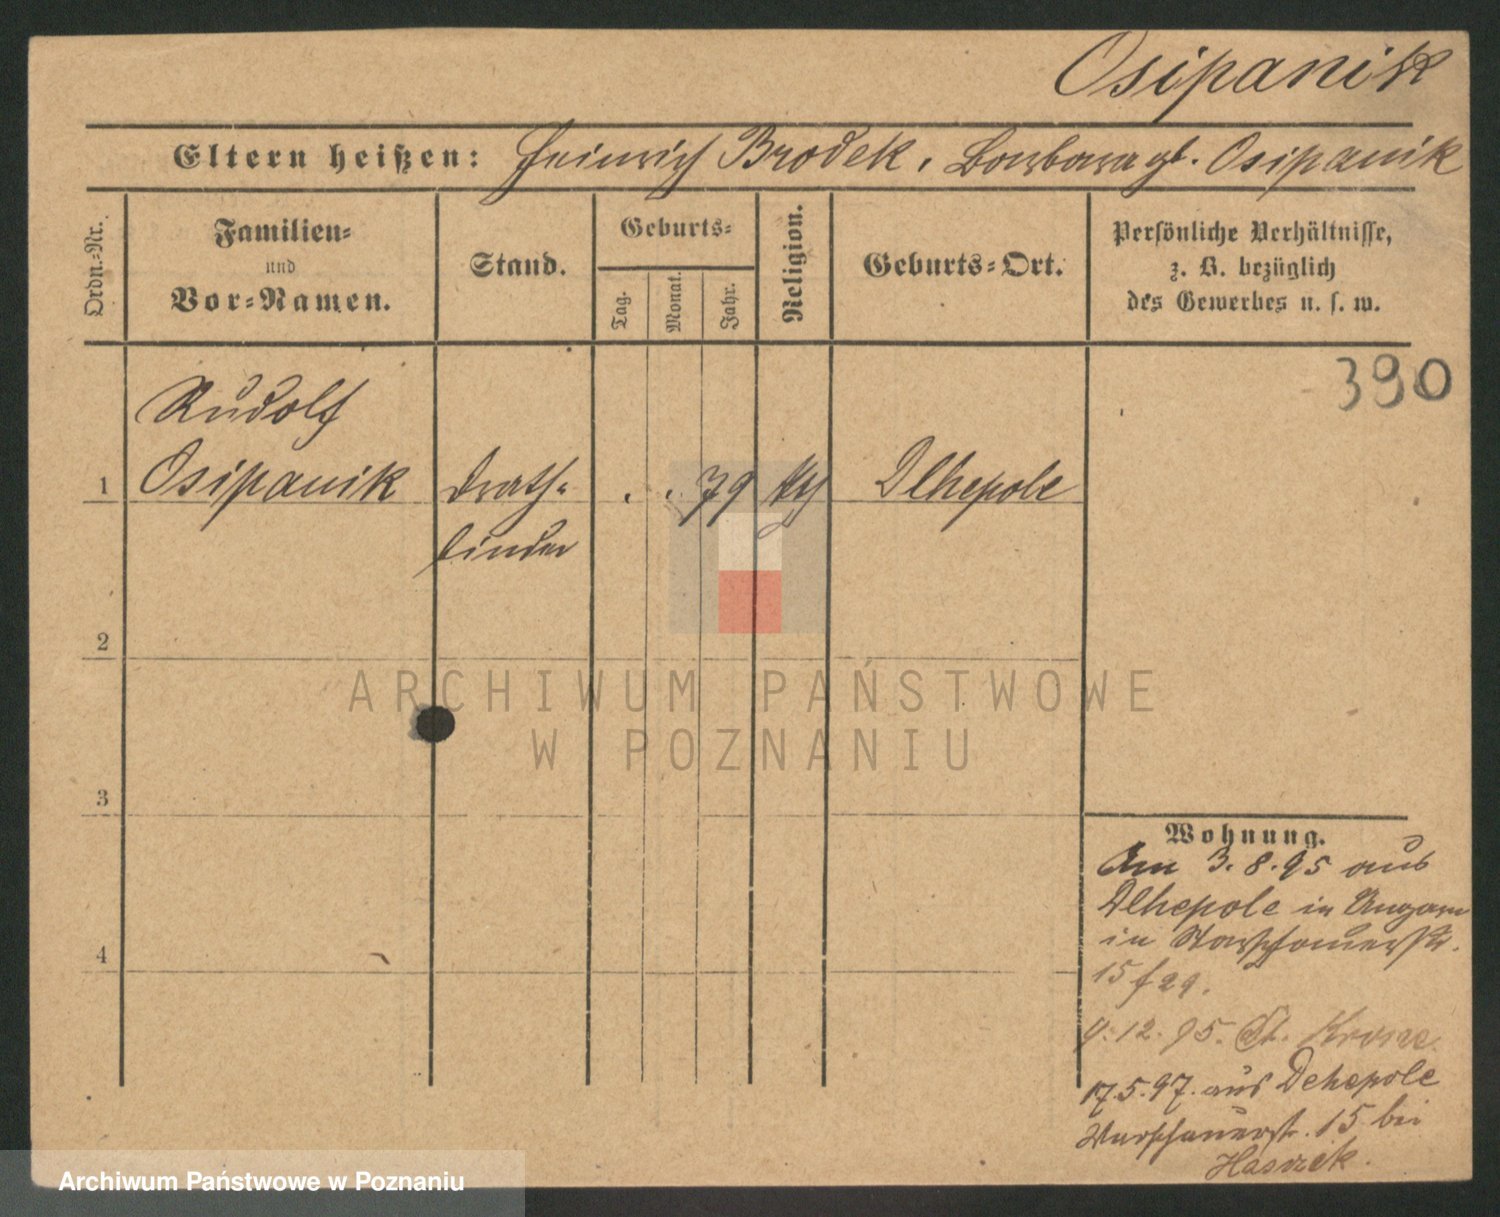 Osipanik
Eltern heißen: Heinrich Brodek, Barbara gb. Osipanik
Ordn.-Nr.
Familien-
und
Vor-Namen.
Stand.
Geburts-
Tag.
Monat.
Jahr.
Religion.
Geburts-Ort.
Persönliche Verhältnisse,
z. B. bezüglich
des Gewerbes u. s. w.
390
Rudolf
1 Osipanik Drath- . . 79 Dlhepole
binder
2
ARCHIWUM PAŃSTWOWE
W POZNANIU
3
Wohnung.
Am 3.8.95 aus
Dlhepole in Ungarn
in Warschauerstr.
15 f 29.
9.12.95. Dt. Krone.
17.5.97. aus Dehepole
Warschauerstr. 15 bei
4
Archiwum Państwowe w Poznaniu